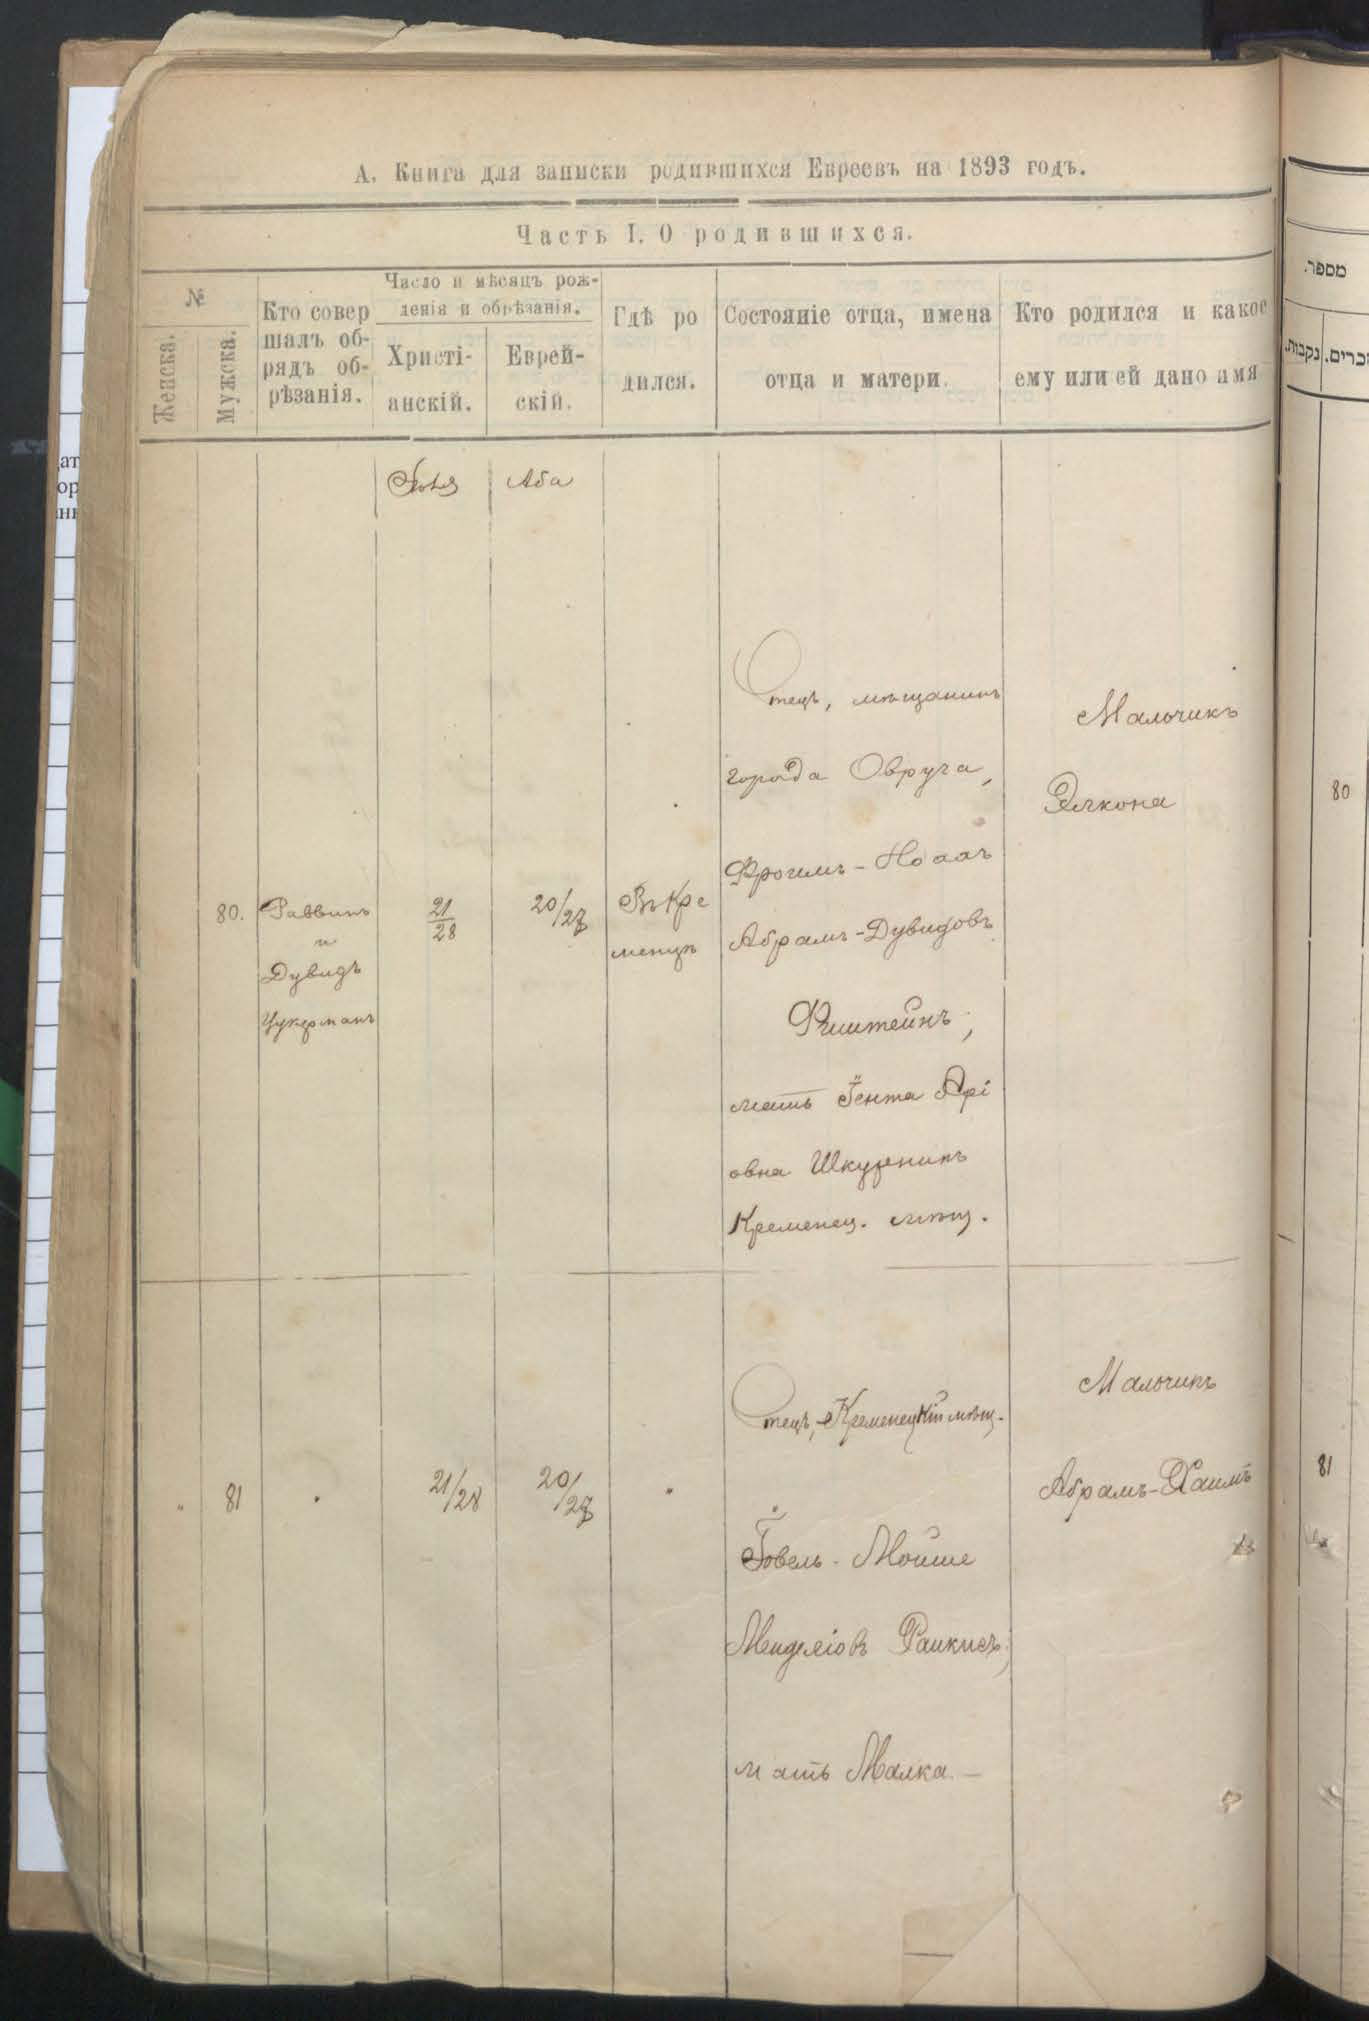 А. Книга для записки родившихся Евреевъ на 1893 годъ.
Часть I. О родившихся.
№
Женска.
Мужска.
Кто совер
шалъ об-
рядъ об-
рѣзанія.
Число и мѣсяцъ рож-
денія и обрѣзанія.
Христі-
анскій.
Еврей-
скій.
Гдѣ ро
дился.
Состояніе отца, имена
отца и матери.
Кто родился и какое
ему или ей дано имя
Іюля
Аба
80.
Раввинъ
и
Дувидъ
Цукерманъ
21/28
20/27
Въ Кре
менцѣ
Отецъ, мѣщанинъ
города Овруча,
Фроимъ-Ноахъ
Абрамъ-Дувидовъ
мать Іента Арі
овна Шкурникъ
Кременец. мѣщ.
Мальчикъ
Элкона
"
81
"
21/28
20/27
"
Отецъ, Кременецкій мѣщ.
Іовель-Мойше
Менделіовъ
мать Малка.
Мальчикъ
Абрамъ-Хаимъ
מספר.
נקבות.
זכרים.
80
81